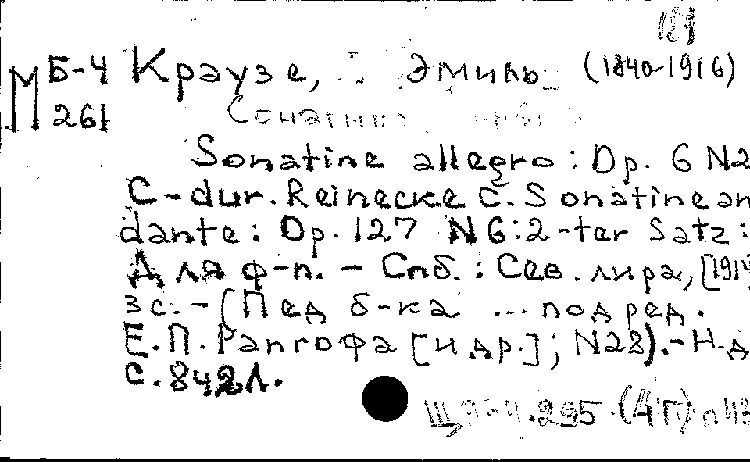 Б-4 Краузе, Эмиль (1840-1916)
М 261
Sonatine allegro : Op. 6 N2
C-dur. Reinecke C. Sonatine an
dante : Op. 127 N6 : 2-ter Satz :
Для ф-п. - Спб. : Сев. лира, [191
3с. - (Пед б-ка ... под ред.
Е.П. Рапгофа [и др.] ; N28). - Н.д
С. 842Л.